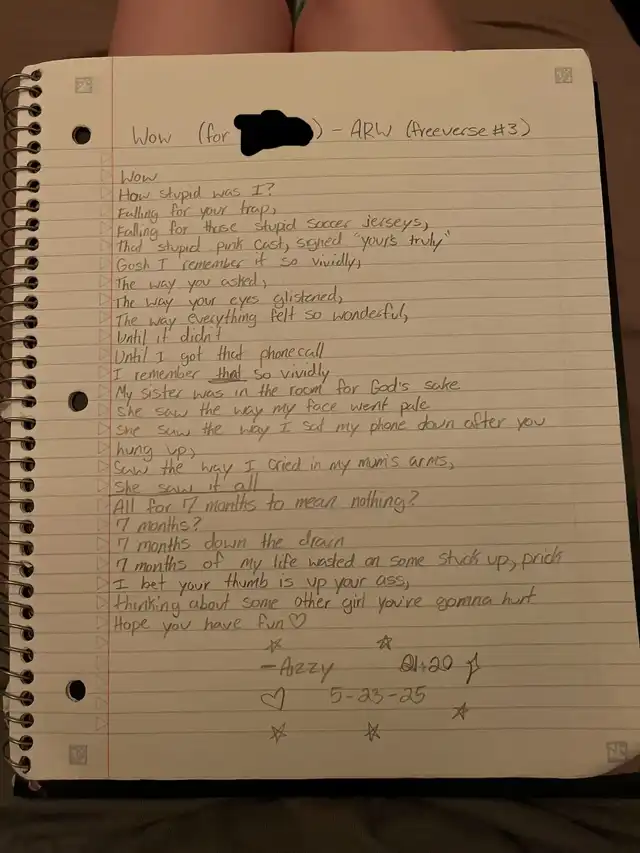 Wow (for ) - ARW (freeverse #3)
Wow
How stupid was I?
Falling for your trap,
Falling for those stupid soccer jerseys,
That stupid pink cast, signed "yours truly"
Gosh I remember it so vividly,
The way you asked,
The way your eyes glistened,
The way everything felt so wonderful,
Until it didn't
Until I got that phonecall
I remember that so vividly
My sister was in the room for God's sake
She saw the way my face went pale
She saw the way I sat my phone down after you
hung up,
Saw the way I cried in my mum's arms,
She saw it all
All for 7 months to mean nothing?
7 months?
7 months down the drain
7 months of my life wasted on some stuck up, prick
I bet your thumb is up your ass,
thinking about some other girl you're gonna hurt
Hope you have fun♡
-Azzy
5-23-25